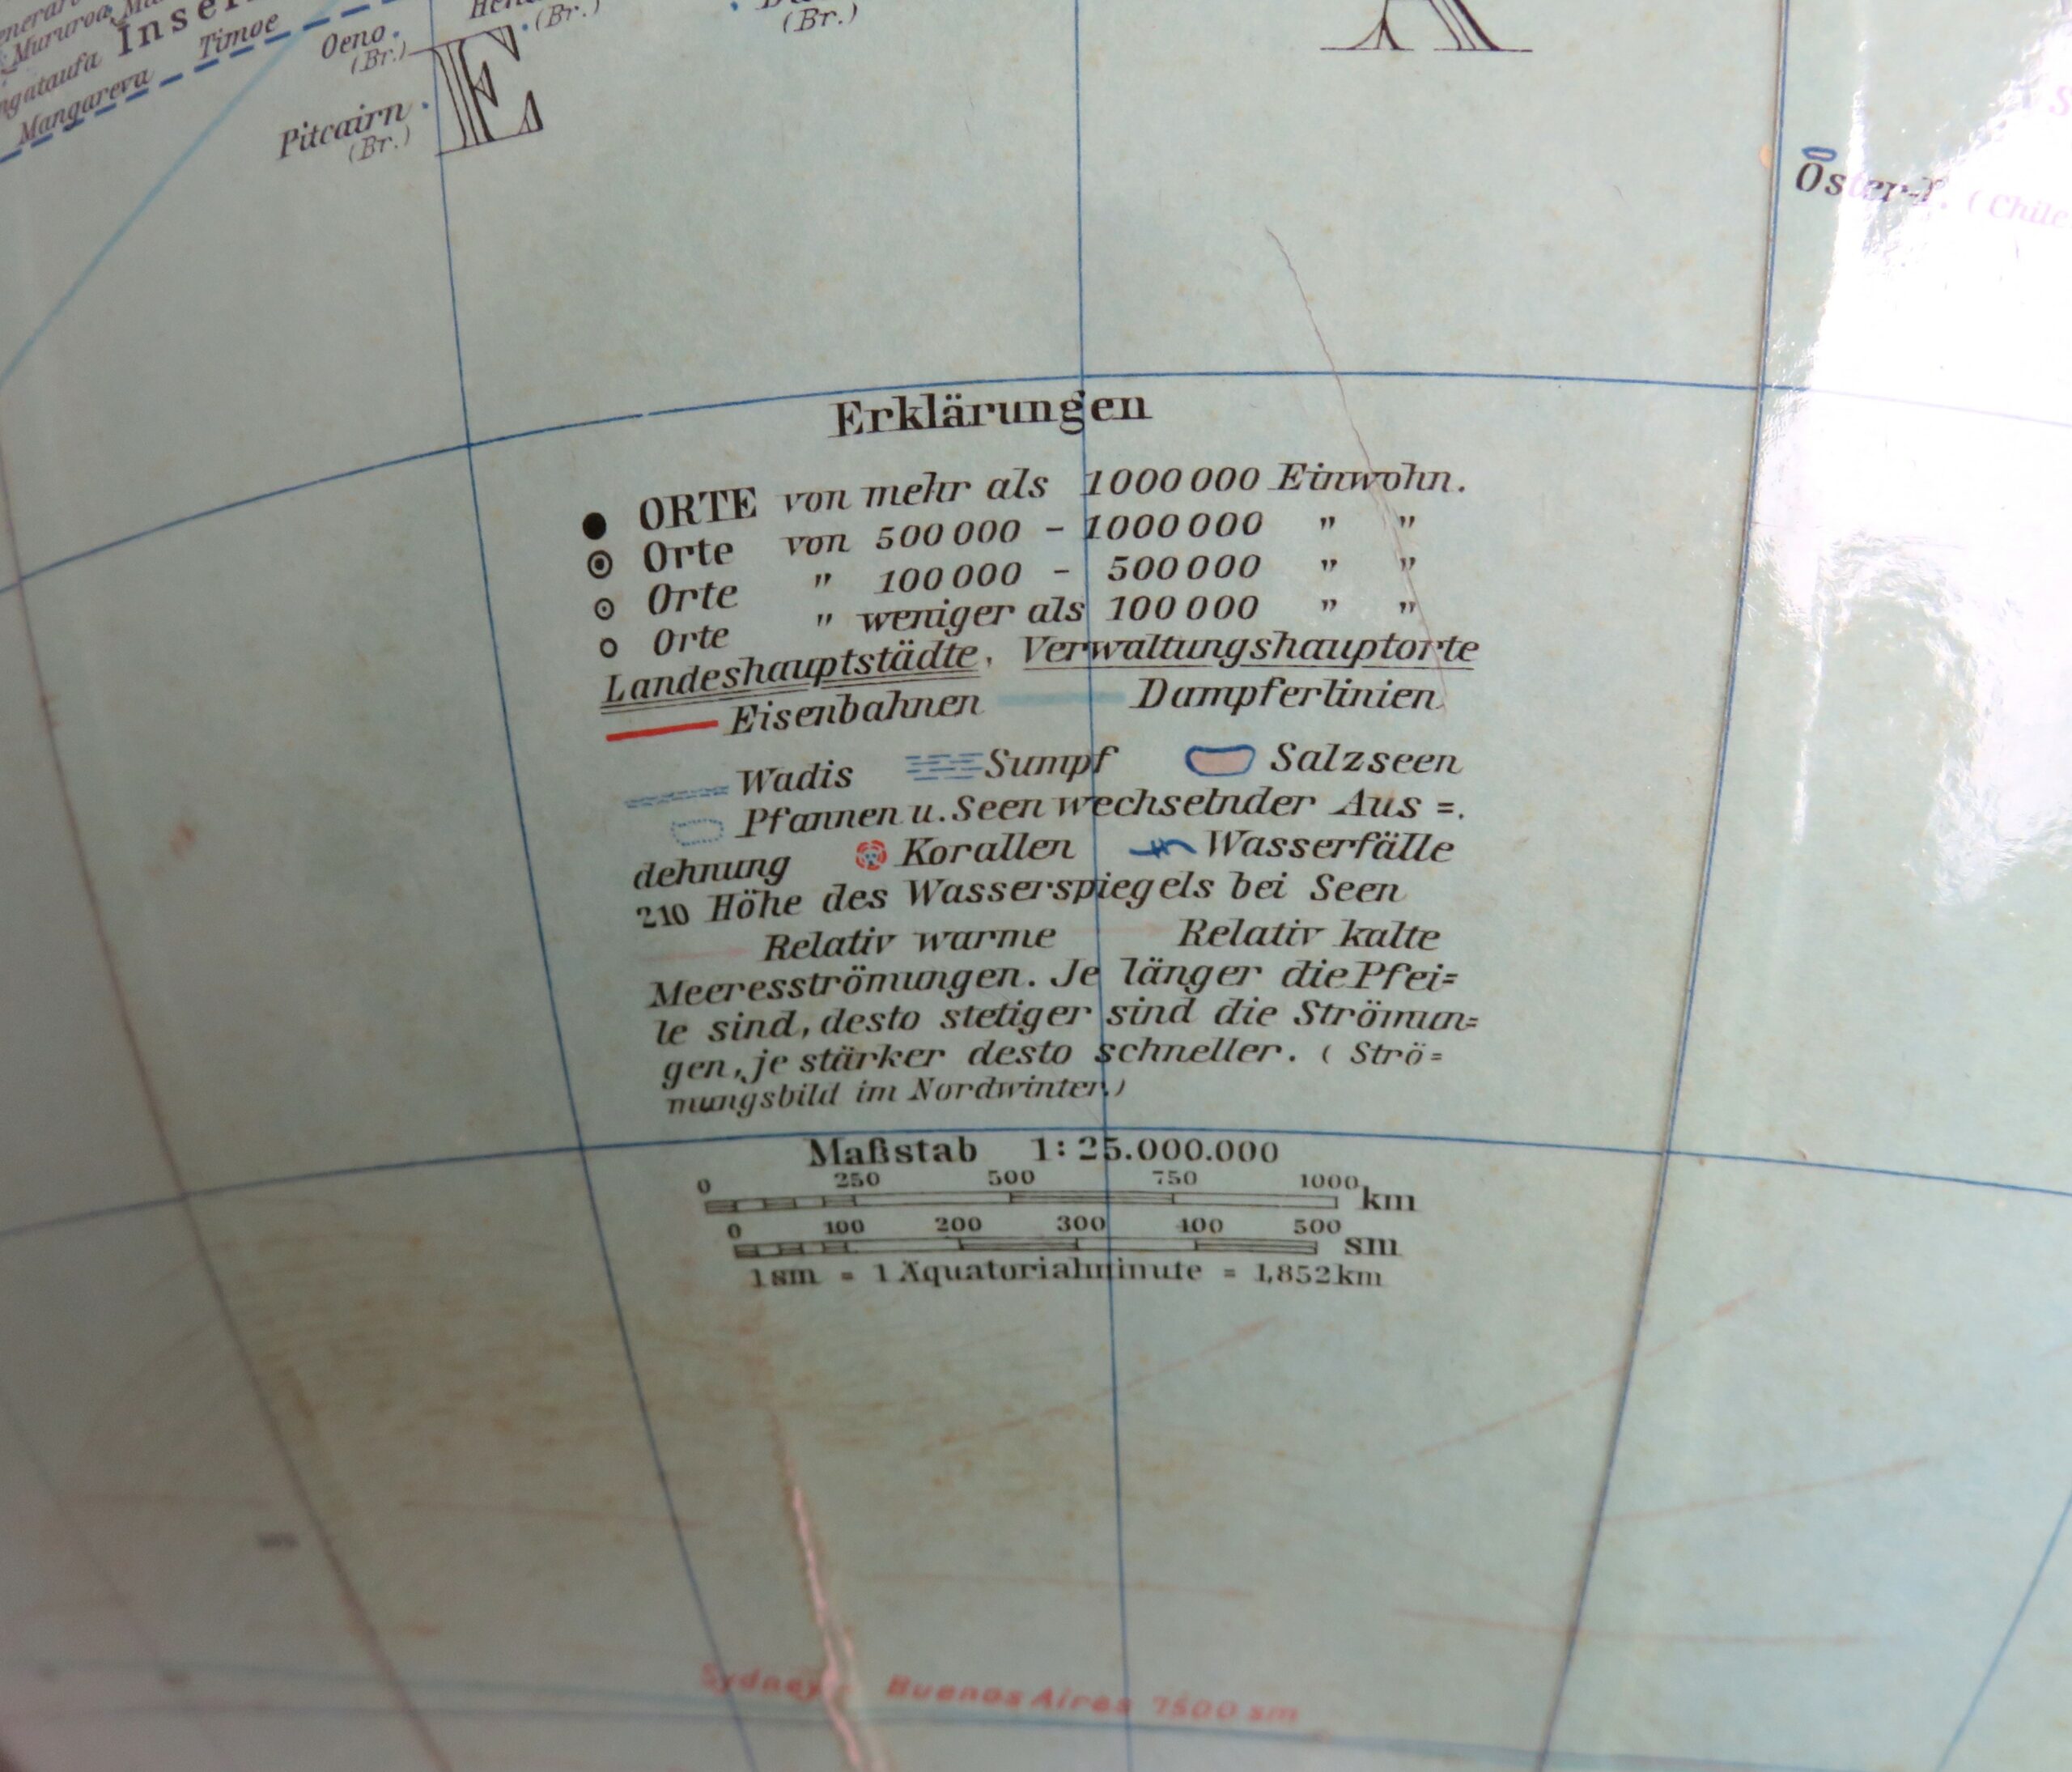 Mururoa
Inse
Timoe
Oeno
(Br.)
(Br.)
(Br.)
Mangareva
Pitcairn
(Br.)
E
A
Oster-I. (Chile
Erklärungen
ORTE von mehr als 1000 000 Einwohn.
Orte von 500 000 – 1000 000 " "
Orte " 100 000 – 500 000 " "
Orte " weniger als 100 000 " "
Landeshauptstädte, Verwaltungshauptorte
Eisenbahnen Dampferlinien
Wadis Sumpf Salzseen
Pfannen u. Seen wechselnder Aus =.
dehnung Korallen Wasserfälle
210 Höhe des Wasserspiegels bei Seen
Relativ warme Relativ kalte
Meeresströmungen. Je länger die Pfei=
le sind, desto stetiger sind die Strömun=
gen, je stärker desto schneller. ( Strö=
mungsbild im Nordwinter.)
Maßstab 1: 25.000.000
0 250 500 750 1000 km
0 100 200 300 400 500 sm
1 sm = 1 Äquatorialminute = 1,852 km
Sydney - Buenos Aires 7500 sm